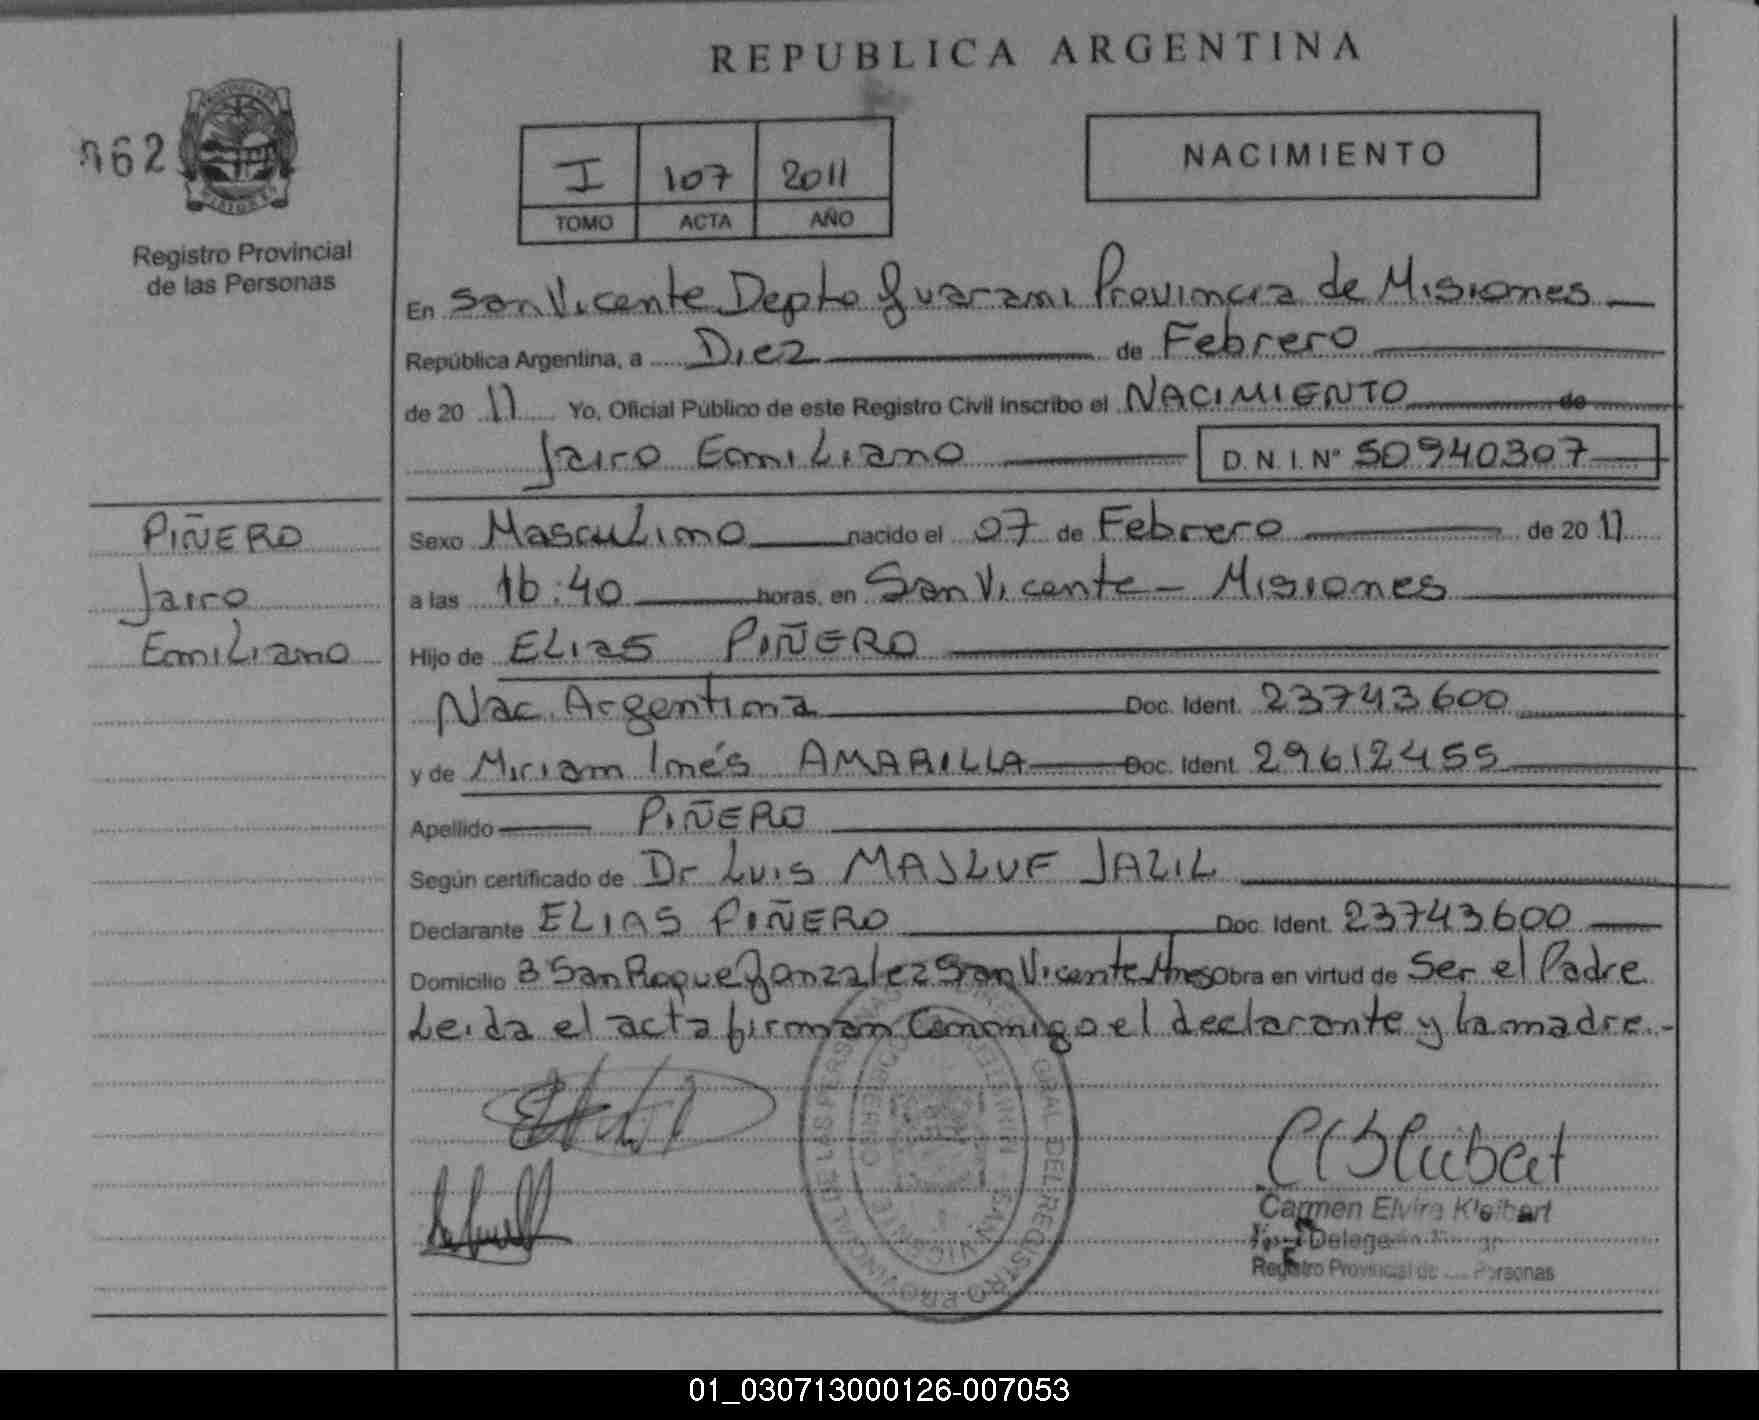 REPUBLICA ARGENTINA
062
Registro Provincial
de las Personas
I 107 2011
TOMO ACTA AÑO
NACIMIENTO
En San Vicente Depto Guarani Provincia de Misiones
República Argentina, a Diez de Febrero
de 2011 Yo, Oficial Público de este Registro Civil inscribo el NACIMIENTO de
Jairo Emiliano D.N.I. Nº 50940307
PIÑERO
Jairo
Emiliano
Sexo Masculino nacido el 07 de Febrero de 2011
a las 16:40 horas, en San Vicente - Misiones
Hijo de ELIAS PIÑERO
Nac. Argentina Doc. Ident. 23743600
y de Miriam Inés AMARILLA Doc. Ident. 29612455
Apellido PIÑERO
Según certificado de Dr Luis MAJLUF JALIL
Declarante ELIAS PIÑERO Doc. Ident. 23743600
Domicilio B San Roque Gonzalez San Vicente Mnes Obra en virtud de Ser el Padre
Leida el acta firman Conmigo el declarante y la madre.-
REGISTRO PROVINCIAL DE LAS PERSONAS
SAN VICENTE
Carmen Elvira Kleibert
Registro Provincial de Personas
01_030713000126-007053